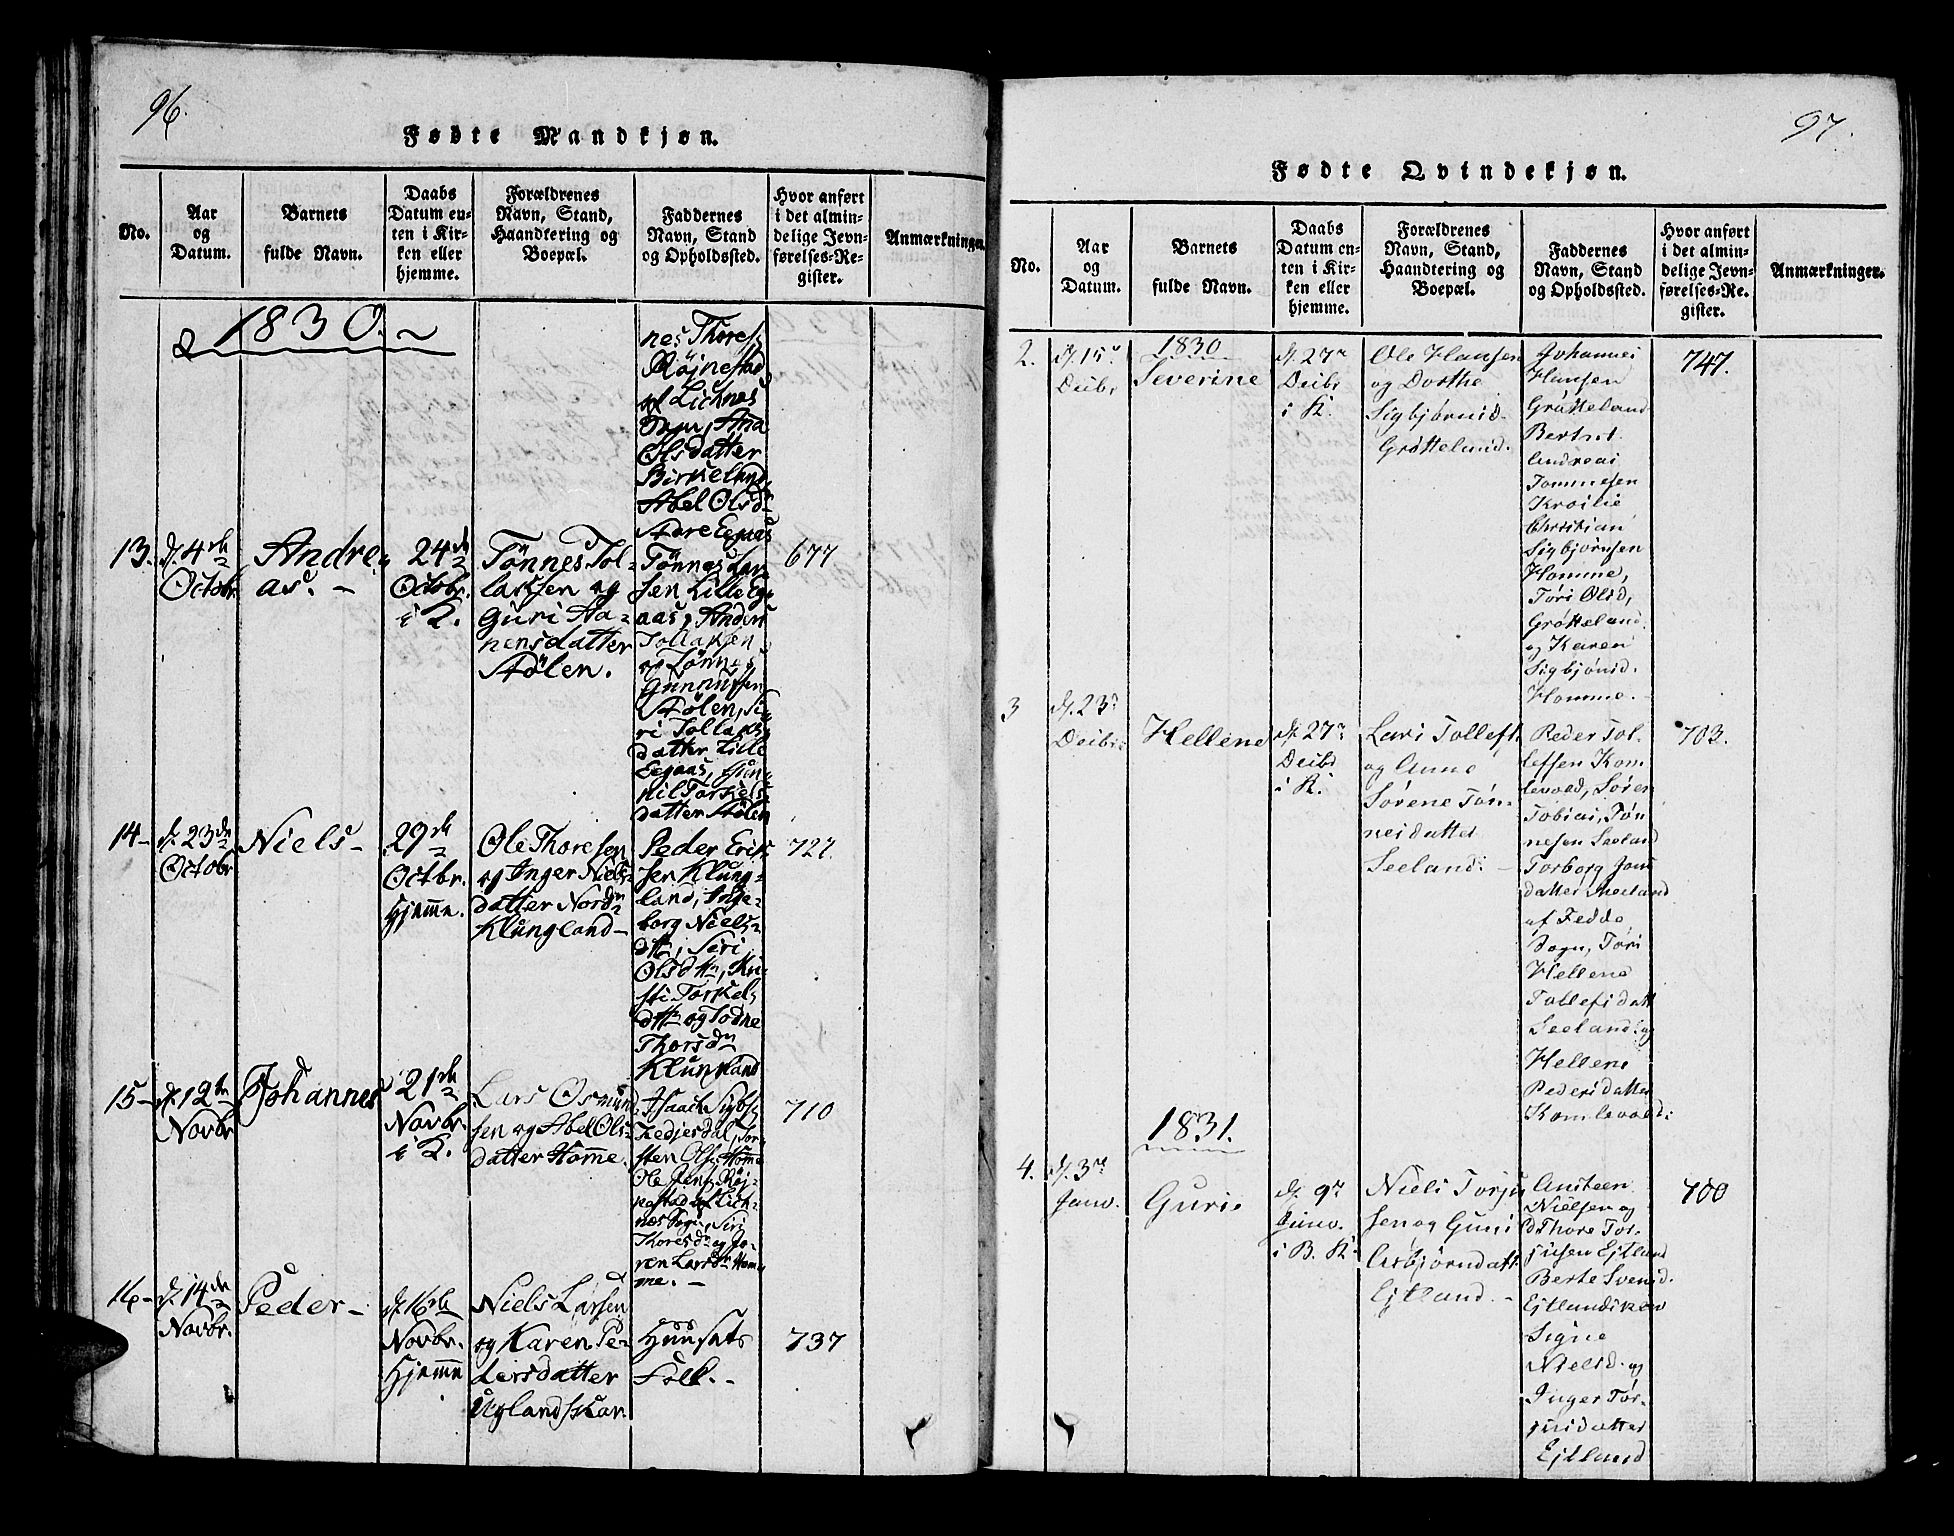 96.
Fødte Mandkjøn.
No.
Aar
og
Datum.
Barnets
fulde Navn.
Daabs
Datum en-
ten i Kir-
ken eller
hjemme.
Forældrenes
Navn, Stand,
Haandtering og
Boepæl.
Faddernes
Navn, Stand
og Opholdssted.
Hvor anført
i det almin-
delige Jevn-
førelses-Re-
gister.
Anmærkninger.
1830.
nes Thores,
Røjnestad
af Lichnes
Sogn, Ana
Olsdatter
Birkeland,
Abel Olsdr
Store Eegaas
13.
d. 4de
Octobr.
Andre-
as. -
24de
Octobr.
i K.
Tönnes Tol-
laksen og
Guri Aa-
nensdatter
Stölen.
Tönnas Lar-
sen Lille Eg-
aas, Anders
Tollaksen
og Tönnes
Gunnufsen
Stölen, Si-
ri Tollaks-
datter Lille
Eegaas, Gun-
nil Torkels-
datter Stölen
677
14-
d. 23de
Octobr
Niels-
29de
Octbr.
Hjemme.
Ole Thoresen
og Inger Niels-
datter Nordr
Klungland-
Peder Erik-
sen Klung-
land, Inge-
borg Niels-
dttr, Siri
Olsdttr, Kri-
sti Torkels
dttr og Todne
Thorsdr
Klungland
727.
15-
d. 12te
Novbr
Johannes
21de
Novbr.
i K.
Lars Osmund-
sen og Abel Ols-
datter Homme.
Isaack Sigbs,
Fedjesdal, Tor-
sten Ols, Homme
Ole Jens, Røj-
nestad af Lich-
nes Sogn, Siri
Thoresdr og Jo-
ren Larsdr Hom-
me. -
710
16-
d. 14de
Novbr.
Peder-
d. 16de
Novbr.
Hjemme
Niels Larsen
og Karen Pe-
dersdatter
Uglandskar.
Huusets
Folk. -
737
97.
Fødte Qvindekjøn.
No.
Aar
og
Datum.
Barnets
fulde Navn.
Daabs
Datum en-
ten i Kir-
ken eller
hjemme.
Forældrenes
Navn, Stand,
Haandtering og
Boepæl.
Faddernes
Navn, Stand
og Opholdssted.
Hvor anført
i det almin-
delige Jevn-
førelses-Re-
gister.
Anmærkninger.
1830
2.
d. 15de
Decbr
Severine
d. 27de
Decbr
i K.
Ole Hansen
og Dorthe
Sigbjørnsd.
Grøtteland.
Johannes
Hansen
Grøtteland
Berthel
Andreas
Tommesen
Christian
Sigbjørnsen
Homme,
Tøri Olsd,
Grøtteland.
og Karen
Sigbjønsd.
Homme.
747.
3
d. 23de
Decbr:
Hellene
d. 27de
Decbr
i K.
Lars Tollefs.
og Anne
Sørene Tøn-
nesdatter
Seeland: -
Peder Tol-
lefsen Kom-
levold, Søren
Tobias, Tøn-
nesen Seeland
Torborg Jons
datter Meeland
af Fedde
Sogn, Tøri
Hellene
Tollefsdatt
Seeland og
Hellene
Pedersdatter
Komlevold:
703.
1831.
4.
d. 3de
Janv.
Guri.
d. 9de
Janv.
i B. K.
Niels Torju-
sen og Guni
Asbjørndatt
Ejtland. -
Ansteen
Nielsen og
Thore Tor-
jusen Ejtland
Berte Svensd.
Signe
Nielsd. og
Inger Tor-
jusdatter
Ejtland
700